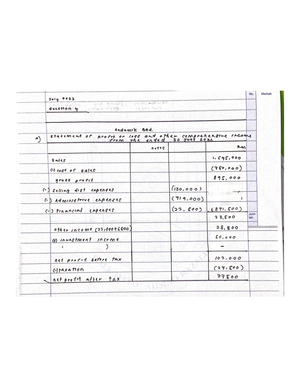 July 2022
Question 4
Redwork Bhd.
a) Statement of profit or loss and other comprehensive income
from the ended 30 June 2022
notes RM
Sales 1,645,000
(-) cost of sales (750,000)
gross profit 895,000
(-) Selling dist expenses (130,000) -
(-) Administrative expenses (719,000) -
(-) Financial expenses (22,500) (871,500)
23,500
other income 28,800
(+) investment income 50,000
-
net profit before tax 102,000
(-) taxation (24,500)
net profit after tax 77,500